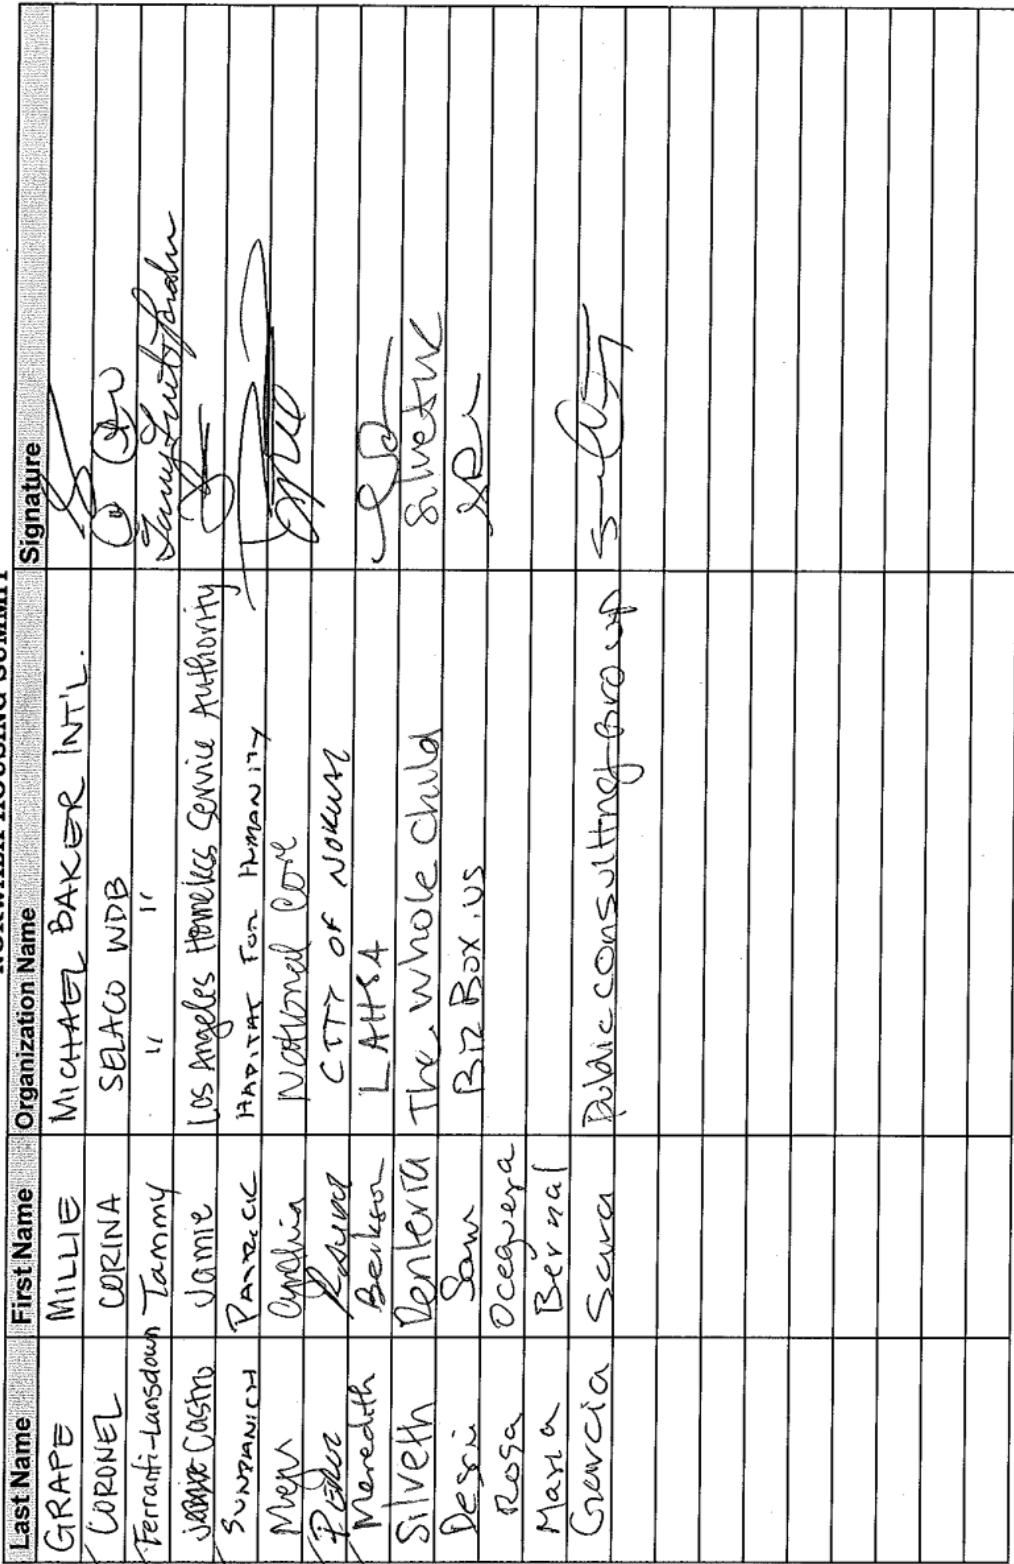 NORWALK HOUSING SUMMIT
Last Name First Name Organization Name Signature
GRAPE MILLIE MICHAEL BAKER INT'L.
CORONEL CORINA SELACO WDB
Ferranti-Lansdown Tammy " "
Castro Jamie Los Angeles Homeless Service Authority
SUNDANICH PATRICK HABITAT FOR HUMANITY
Cynthia National Core
CITY OF
Meredith Berkson LAHSA
Silveth Renteria The Whole Child
Desai Sam BizBox.us
Rosa Oceguera
Maria Bernal
Garcia Sara Public consulting group